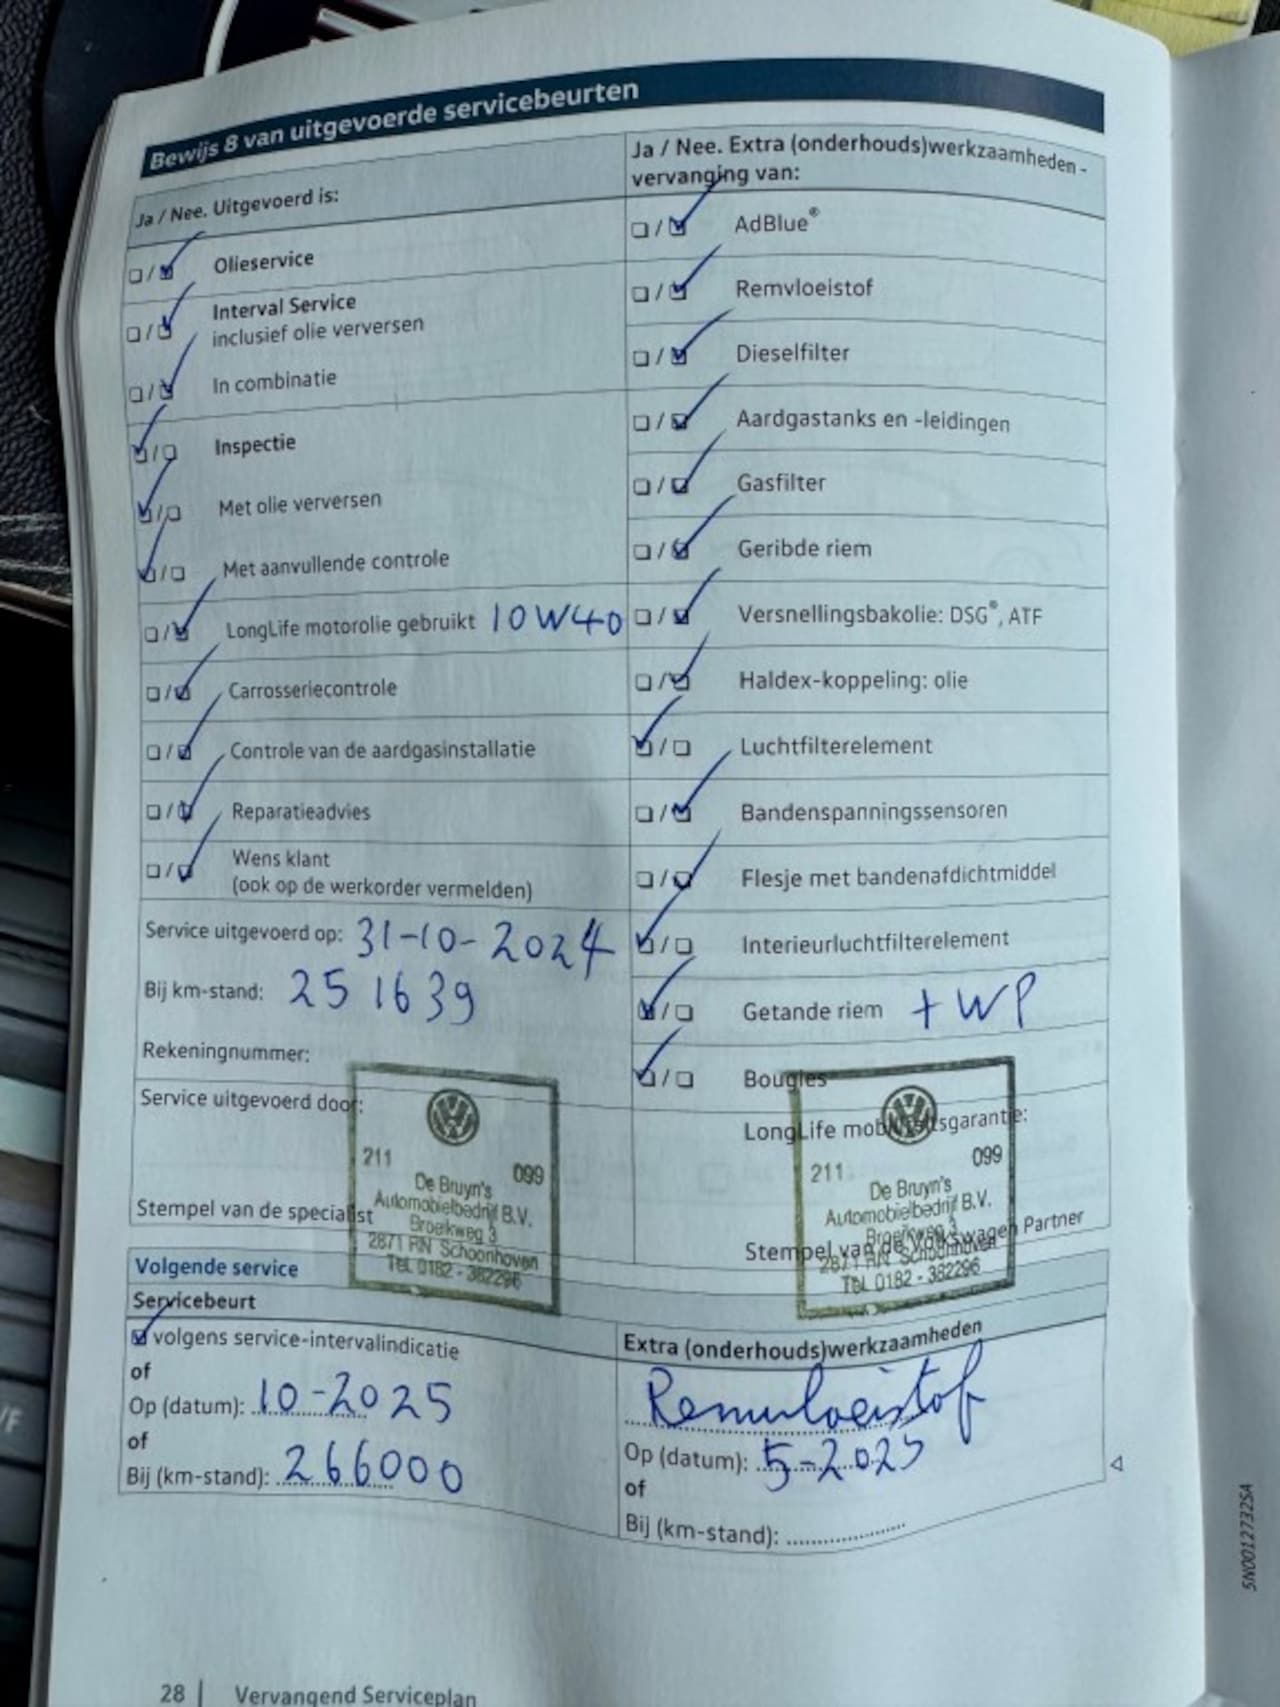 Bewijs 8 van uitgevoerde servicebeurten
Ja / Nee. Uitgevoerd is:
Olieservice
Interval Service
inclusief olie verversen
In combinatie
Inspectie
Met olie verversen
Met aanvullende controle
LongLife motorolie gebruikt 10W40
Carrosseriecontrole
Controle van de aardgasinstallatie
Reparatieadvies
Wens klant
(ook op de werkorder vermelden)
Service uitgevoerd op: 31-10-2024
Bij km-stand: 251639
Rekeningnummer:
Service uitgevoerd door:
211 099
De Bruyn's
Automobielbedrijf B.V.
Broeikweg 3
2871 RN Schoonhoven
Tel. 0182 - 382296
Stempel van de specialist
Ja / Nee. Extra (onderhouds)werkzaamheden -
vervanging van:
AdBlue®
Remvloeistof
Dieselfilter
Aardgastanks en -leidingen
Gasfilter
Geribde riem
Versnellingsbakolie: DSG®, ATF
Haldex-koppeling: olie
Luchtfilterelement
Bandenspanningssensoren
Flesje met bandenafdichtmiddel
Interieurluchtfilterelement
Getande riem + WP
Bougies
LongLife mobiliteitsgarantie:
211 099
De Bruyn's
Automobielbedrijf B.V.
Broeikweg 3
2871 RN Schoonhoven
Tel. 0182 - 382296
Stempel van de Volkswagen Partner
Volgende service
Servicebeurt
volgens service-intervalindicatie
of
Op (datum): 10-2025
of
Bij (km-stand): 266000
Extra (onderhouds)werkzaamheden
Remvloeistof
Op (datum): 5-2025
of
Bij (km-stand):
28 | Vervangend Serviceplan
5N0012732SA